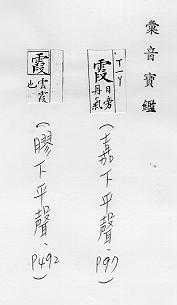 彙音寶鑑
ㄒㄧㄚ
霞日旁丹氣
(嘉下平聲、P97)
霞雲霞也
(膠下平聲、P492)